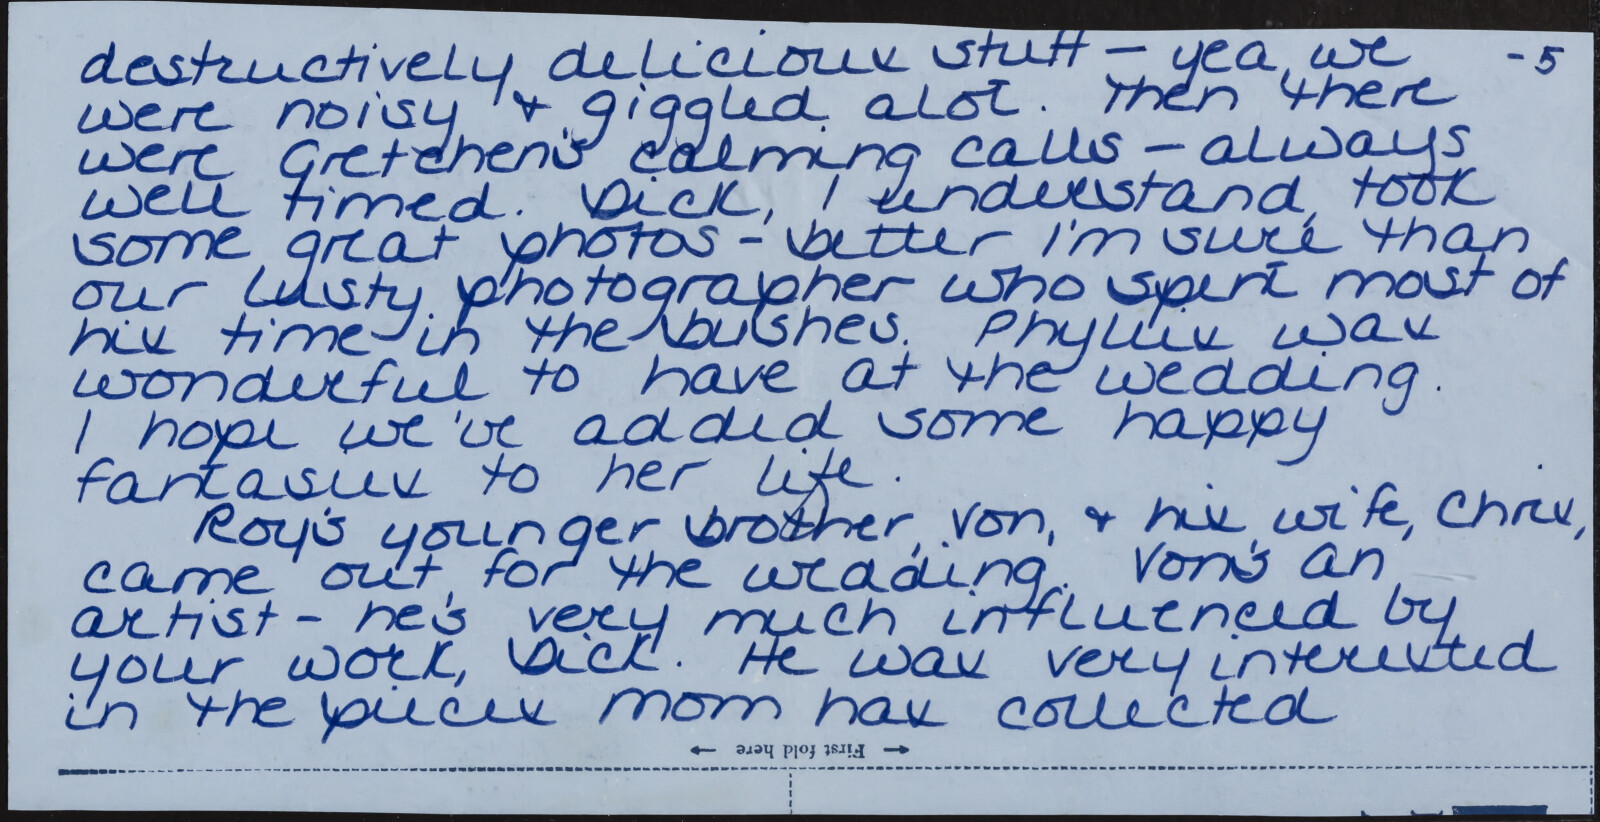 destructively delicious stuff — yea, we -5
were noisy & giggled alot. Then there
were Gretchen's calming calls — always
well timed. Dick, I understand, took
some great photos - better I'm sure than
our lusty photographer who spent most of
his time in the bushes. Phyllis was
wonderful to have at the wedding.
I hope we've added some happy
fantasies to her life.
Roy's younger brother, Von, & his wife, Chris,
came out for the wedding. Von's an
artist - he's very much influenced by
your work, Dick. He was very interested
in the pieces Mom has collected
← First fold here →